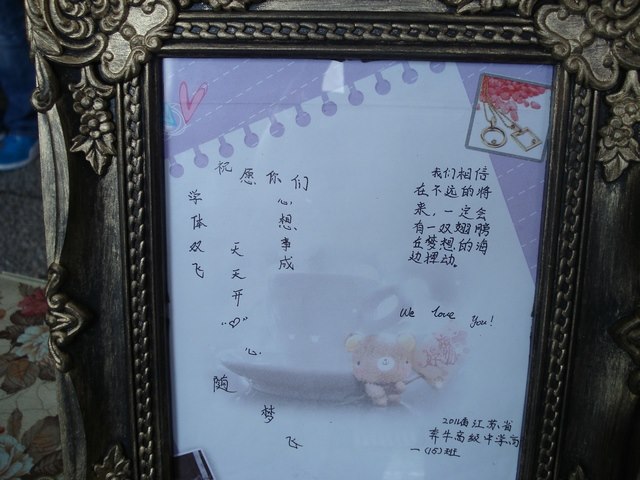 祝愿你们
学体双飞
心想事成
天天开“♡”
心随梦飞
我们相信
在不远的将
来，一定会
有一双翅膀
在梦想的海
边挥动。
We love You!
江苏省
奔牛高级中学高
一(15)班